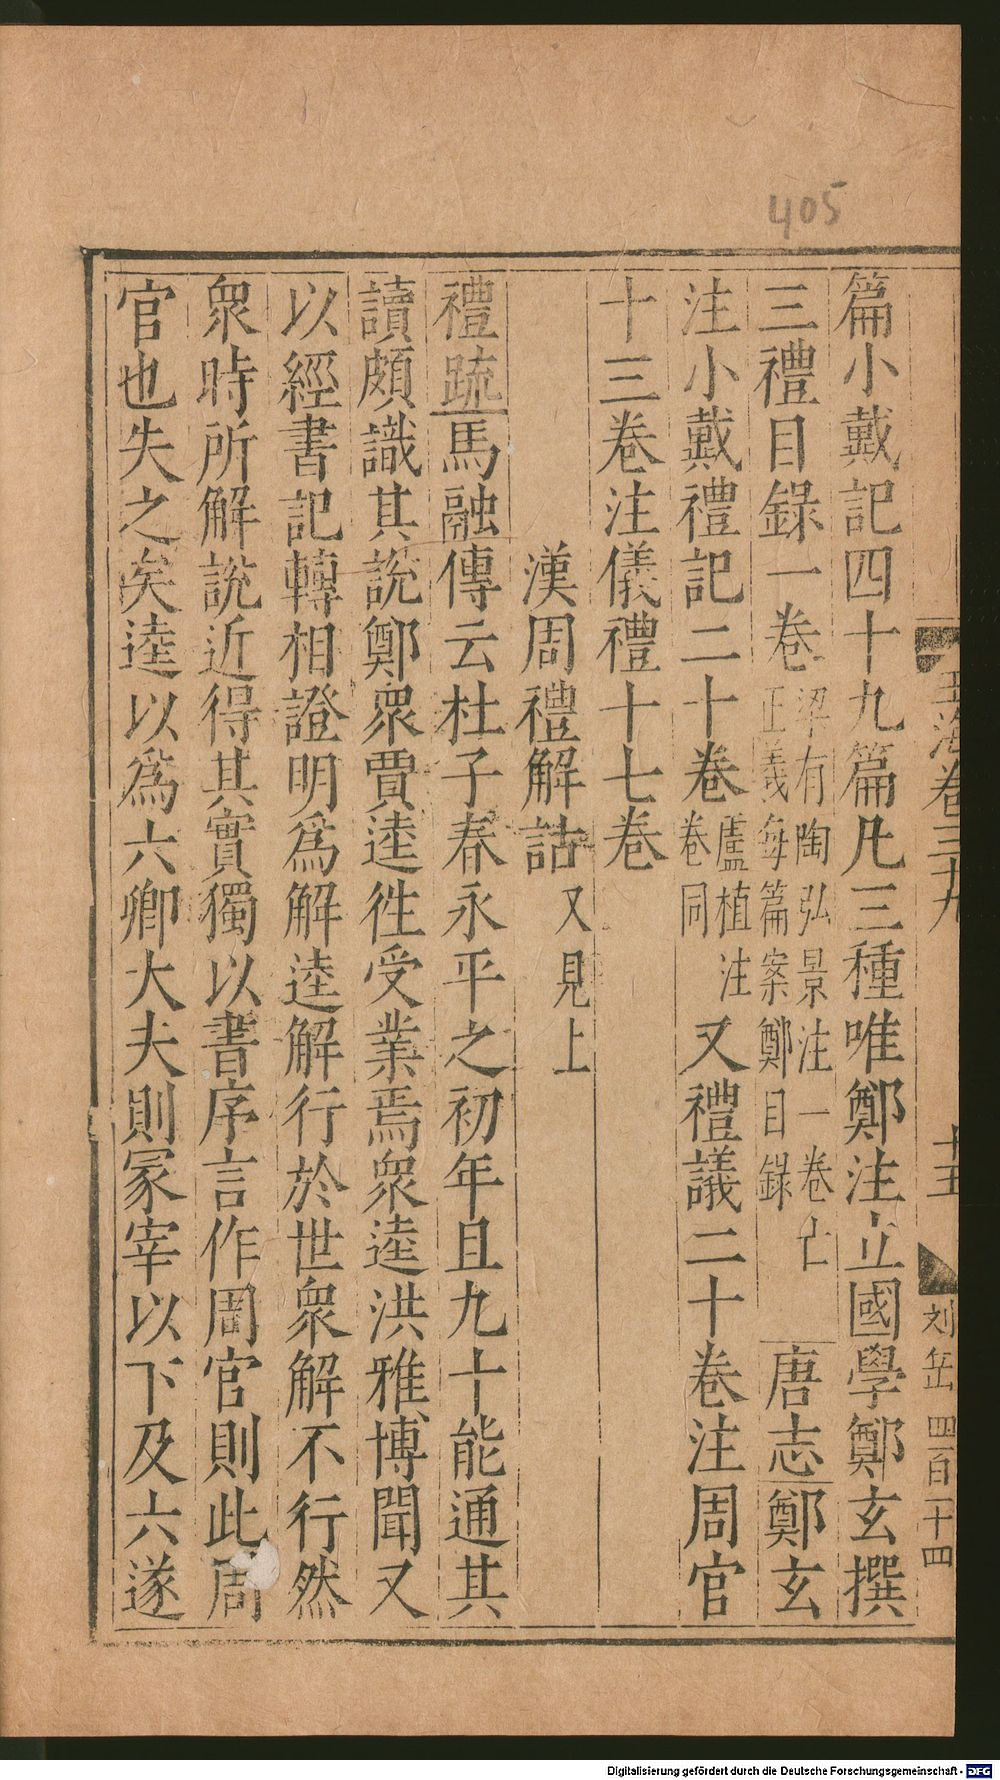 405
玉海卷三十九
十五
刘岳 四百十四
篇小戴記四十九篇凡三種唯鄭注立國學鄭玄撰
三禮目錄一卷梁有陶弘景注一卷亡
正義每篇案鄭目錄唐志鄭玄
注小戴禮記二十卷盧植注
卷同又禮議二十卷注周官
十三卷注儀禮十七卷
漢周禮解詁又見上
禮疏馬融傳云杜子春永平之初年且九十能通其
讀頗識其說鄭衆賈逵徃受業焉衆逵洪雅博聞又
以經書記轉相證明爲解逵解行於世衆解不行然
衆時所解說近得其實獨以書序言作周官則此周
官也失之矣逵以爲六卿大夫則冢宰以下及六遂
Digitalisierung gefördert durch die Deutsche Forschungsgemeinschaft - DFG